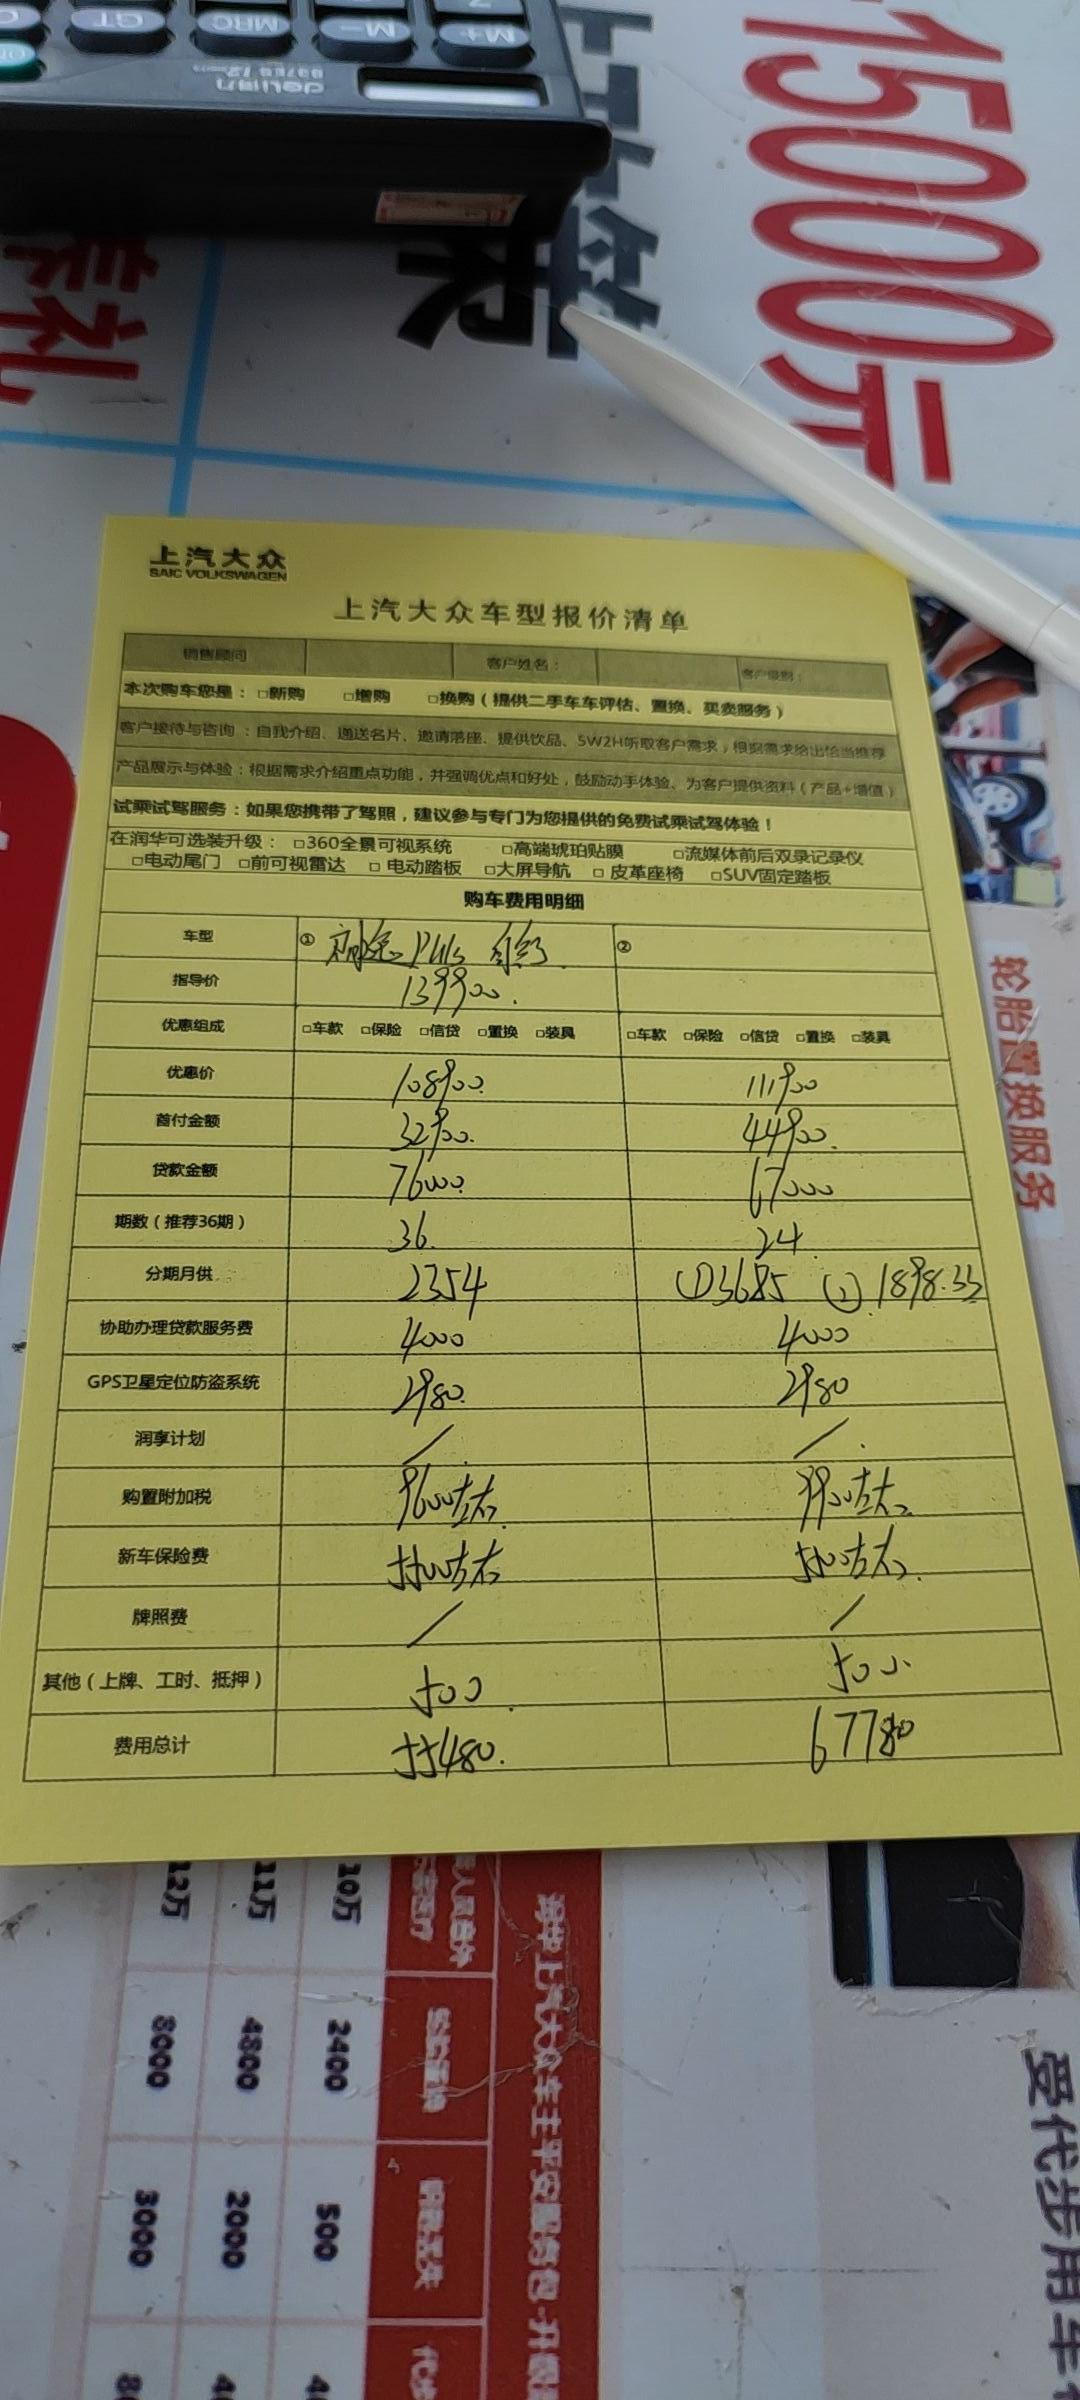 M+
M-
MRC
GT
deli得力
15000元
上汽大众
SAIC VOLKSWAGEN
上汽大众车型报价清单
销售顾问 客户姓名： 客户级别：
本次购车您是：□新购 □增购 □换购（提供二手车车评估、置换、买卖服务）
客户接待与咨询：自我介绍、递送名片、邀请落座、提供饮品、5W2H听取客户需求，根据需求给出恰当推荐
产品展示与体验：根据需求介绍重点功能，并强调优点和好处，鼓励动手体验、为客户提供资料（产品+增值）
试乘试驾服务：如果您携带了驾照，建议参与专门为您提供的免费试乘试驾体验！
在润华可选装升级：□360全景可视系统 □高端琥珀贴膜 □流媒体前后双录记录仪
□电动尾门 □前可视雷达 □电动踏板 □大屏导航 □皮革座椅 □SUV固定踏板
购车费用明细
车型 ① 朗逸Plus ②
指导价 139900.
优惠组成 □车款 □保险 □信贷 □置换 □装具 □车款 □保险 □信贷 □置换 □装具
优惠价 108900. 111900
首付金额 32900. 44900.
贷款金额 76000. 67000
期数（推荐36期） 36. 24.
分期月供 2354 ①3685 ②1898.33
协助办理贷款服务费 4000 4000
GPS卫星定位防盗系统 2980. 2980
润享计划 / /.
购置附加税 9600左右. 9900左右.
新车保险费 5500左右 5500左右.
牌照费 / /
其他（上牌、工时、抵押） 500. 500.
费用总计 55480. 67780
轮胎置换服务
受代步用车
润华上汽大众车主平安服务包-升级
10万 2400 500
11万 4800 2000
12万 8000 3000